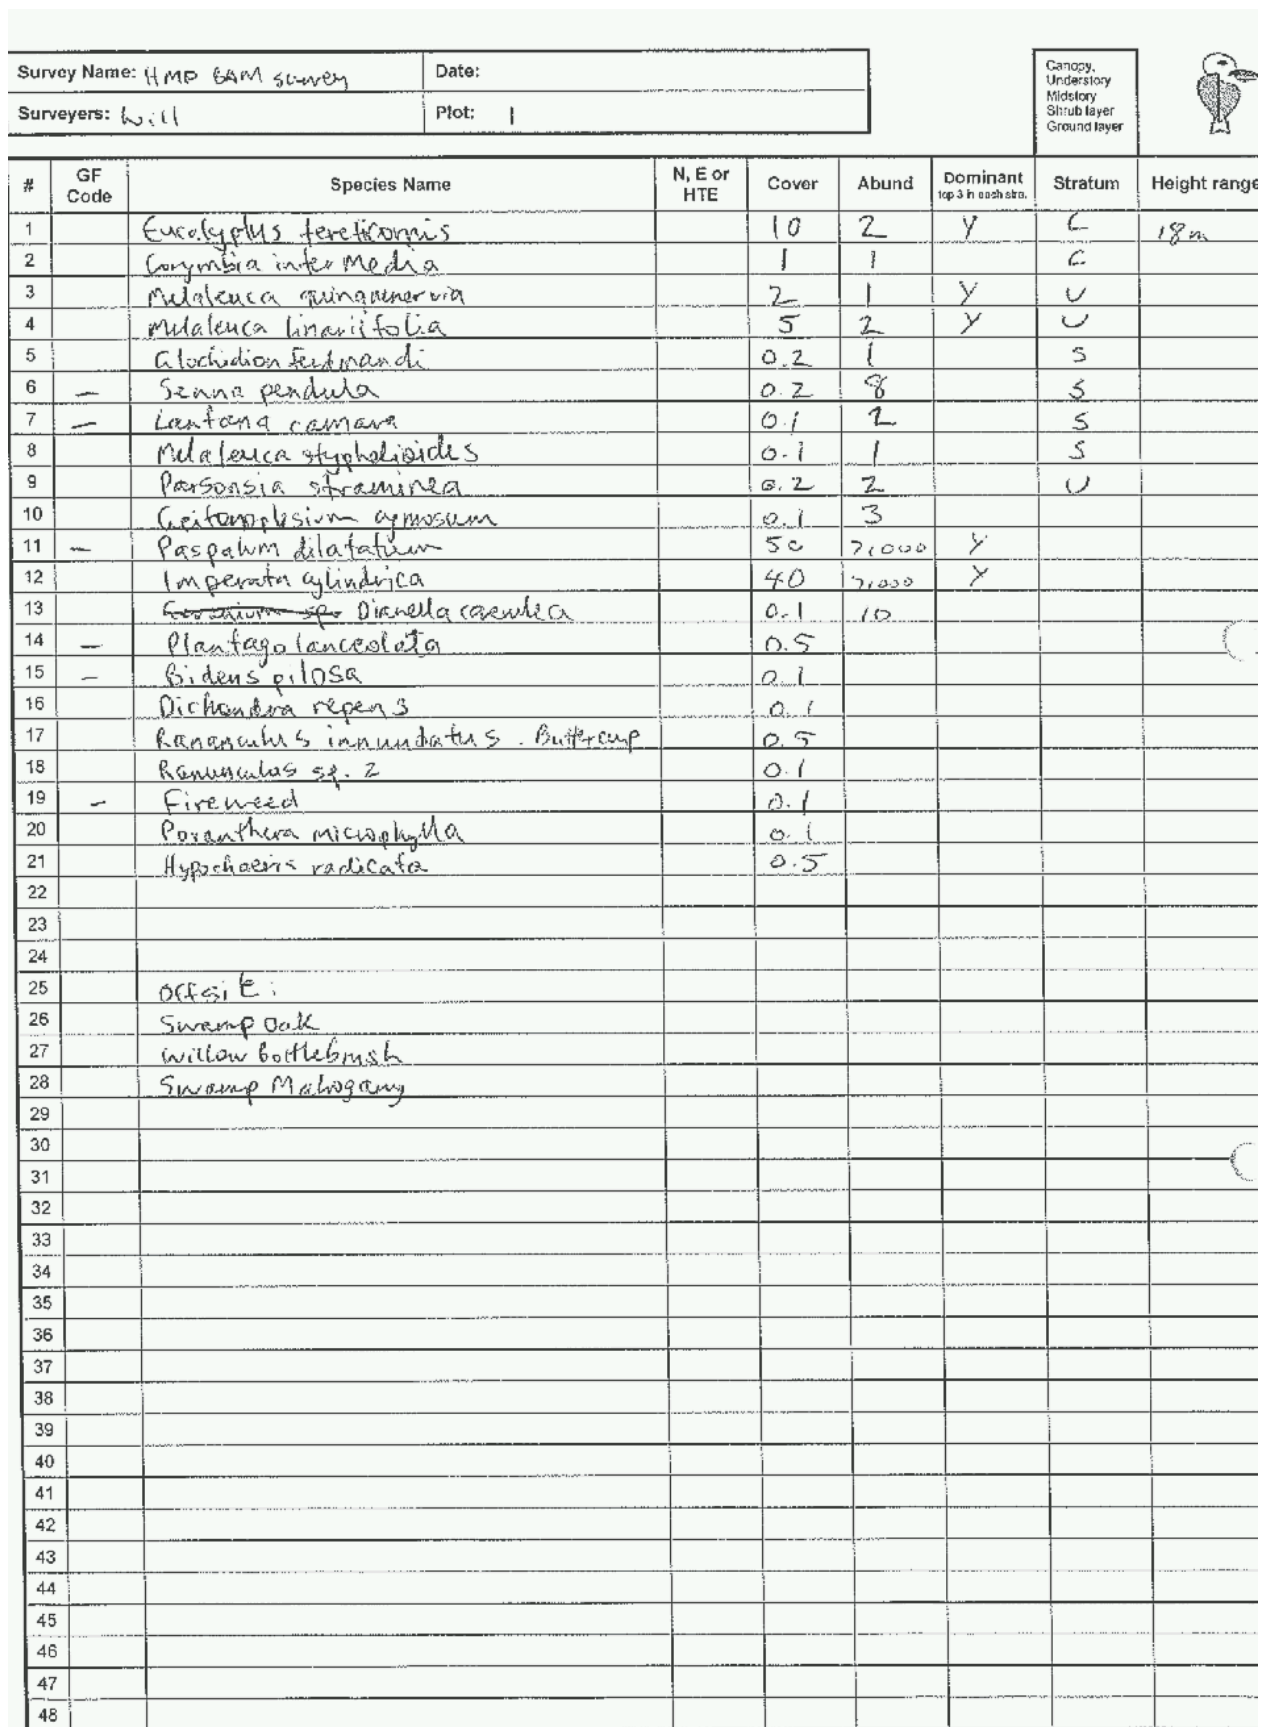 Survey Name: HMP BAM survey Date:
Surveyers: Will Plot: 1
Canopy,
Understory
Midstory
Shrub layer
Ground layer
# GF Code Species Name N, E or HTE Cover Abund Dominant top 3 in each stra. Stratum Height range
1 Eucalyptus tereticornis 10 2 Y C 18m
2 Corymbia interMedia 1 1 C
3 Melaleuca quinquenervia 2 1 Y U
4 Melaleuca linariifolia 5 2 Y U
5 Glochidion ferdinandi 0.2 1 S
6 – Senna pendula 0.2 8 S
7 – Lantana camara 0.1 2 S
8 Melaleuca styphelioides 0.1 1 S
9 Parsonsia straminea 0.2 2 U
10 Geitonoplesium cymosum 0.1 3
11 – Paspalum dilatatum 50 >1,000 Y
12 Imperata cylindrica 40 >1,000 Y
13 Geranium sp. Dianella caerulea 0.1 10
14 – Plantago lanceolata 0.5
15 – Bidens pilosa 0.1
16 Dichondra repens 0.1
17 Rananculus innundatus . Buttercup 0.5
18 Ranunculus sp. 2 0.1
19 – Fireweed 0.1
20 Poranthera microphylla 0.1
21 Hypochaeris radicata 0.5
22
23
24
25 Offsite:
26 Swamp Oak
27 Willow bottlebrush
28 Swamp Mahogany
29
30
31
32
33
34
35
36
37
38
39
40
41
42
43
44
45
46
47
48